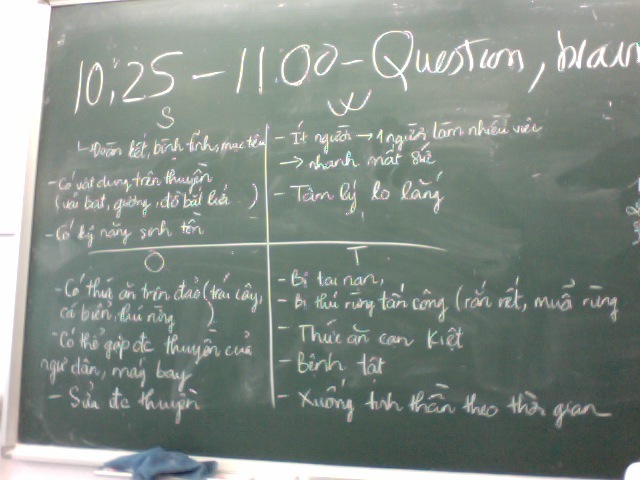 10:25 - 11:00 - Question, brain
S
↳ Đoàn kết, bình tĩnh, mục tiêu
- Có vật dụng trên thuyền
(vải bạt, gương, đồ bắt lửa )
- Có kỹ năng sinh tồn
W
- Ít người → 1 người làm nhiều việc
→ nhanh mất sức
- Tâm lý lo lắng
O
- Có thức ăn trên đảo (trái cây,
cá biển, thú rừng )
- Có thể gặp đc thuyền của
ngư dân, máy bay
- Sửa đc thuyền
T
- Bị tai nạn,
- Bị thú rừng tấn công (rắn rết, muỗi rừng
- Thức ăn cạn kiệt
- Bệnh tật
- Xuống tinh thần theo thời gian